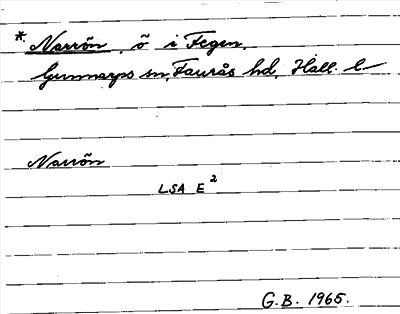 * Narrön, ö i Fegen.
Gunnarps sn, Faurås hd, Hall. l
Narrön
LSA E²
G.B. 1965.